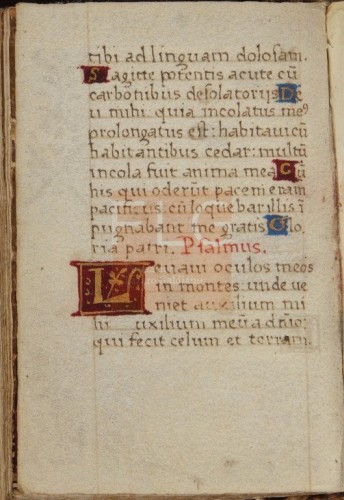 tibi ad linguam dolosam.
Sagitte potentis acute cū
carbonibus desolatorijs De
u mihi quia incolatus me⁹
prolongatus est: habitaui cū
habitantibus cedar: multū
incola fuit anima mea Cū
his qui oderūt pacem eram
pacificus cū loquebar illis ī
pugnabant me gratis Glo
ria patri. Psalmus.
Leuaui oculos meos
in montes: unde ue
niet auxilium mi
hi uxilium meū a dn̄o:
qui fecit celum et terram.